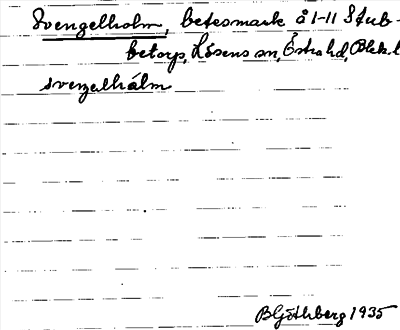 Svengelholm, betesmark å 1-11 Stub-
betorp, Lösens sn, Östra hd, Blek. l
svenʒelhålm
B Göthberg 1935